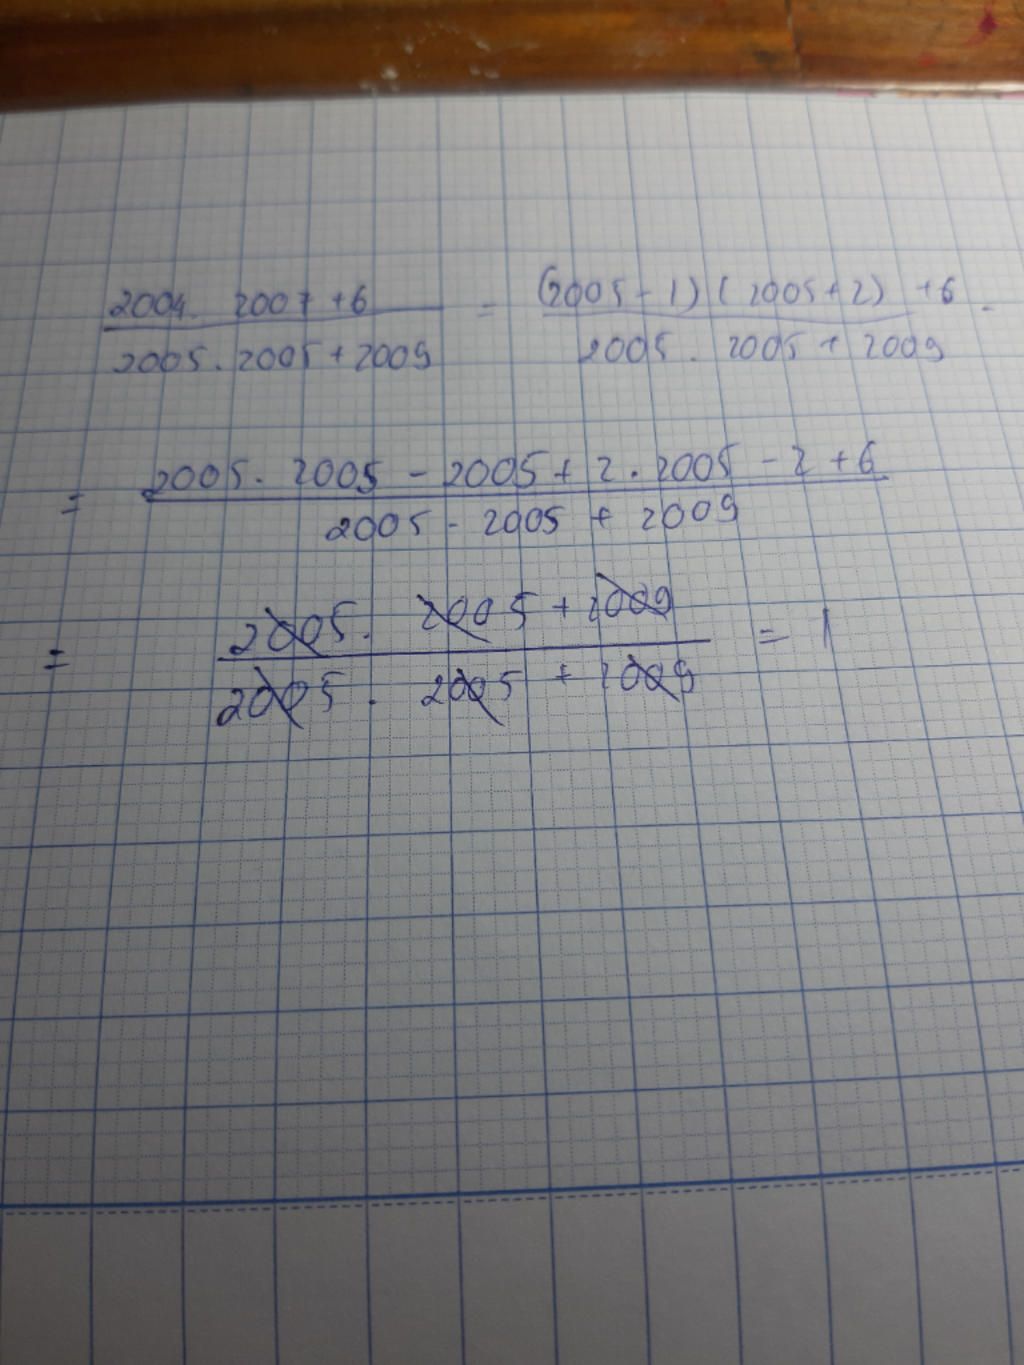 2004. 2007 +6 = (2005-1)(2005+2) +6 -
2005. 2005+2009 2005. 2005+2009
= 2005. 2005 - 2005 + 2. 2005 - 2 + 6
2005 - 2005 + 2009
= 2005. 2005 + 2009 = 1
2005. 2005 + 2009